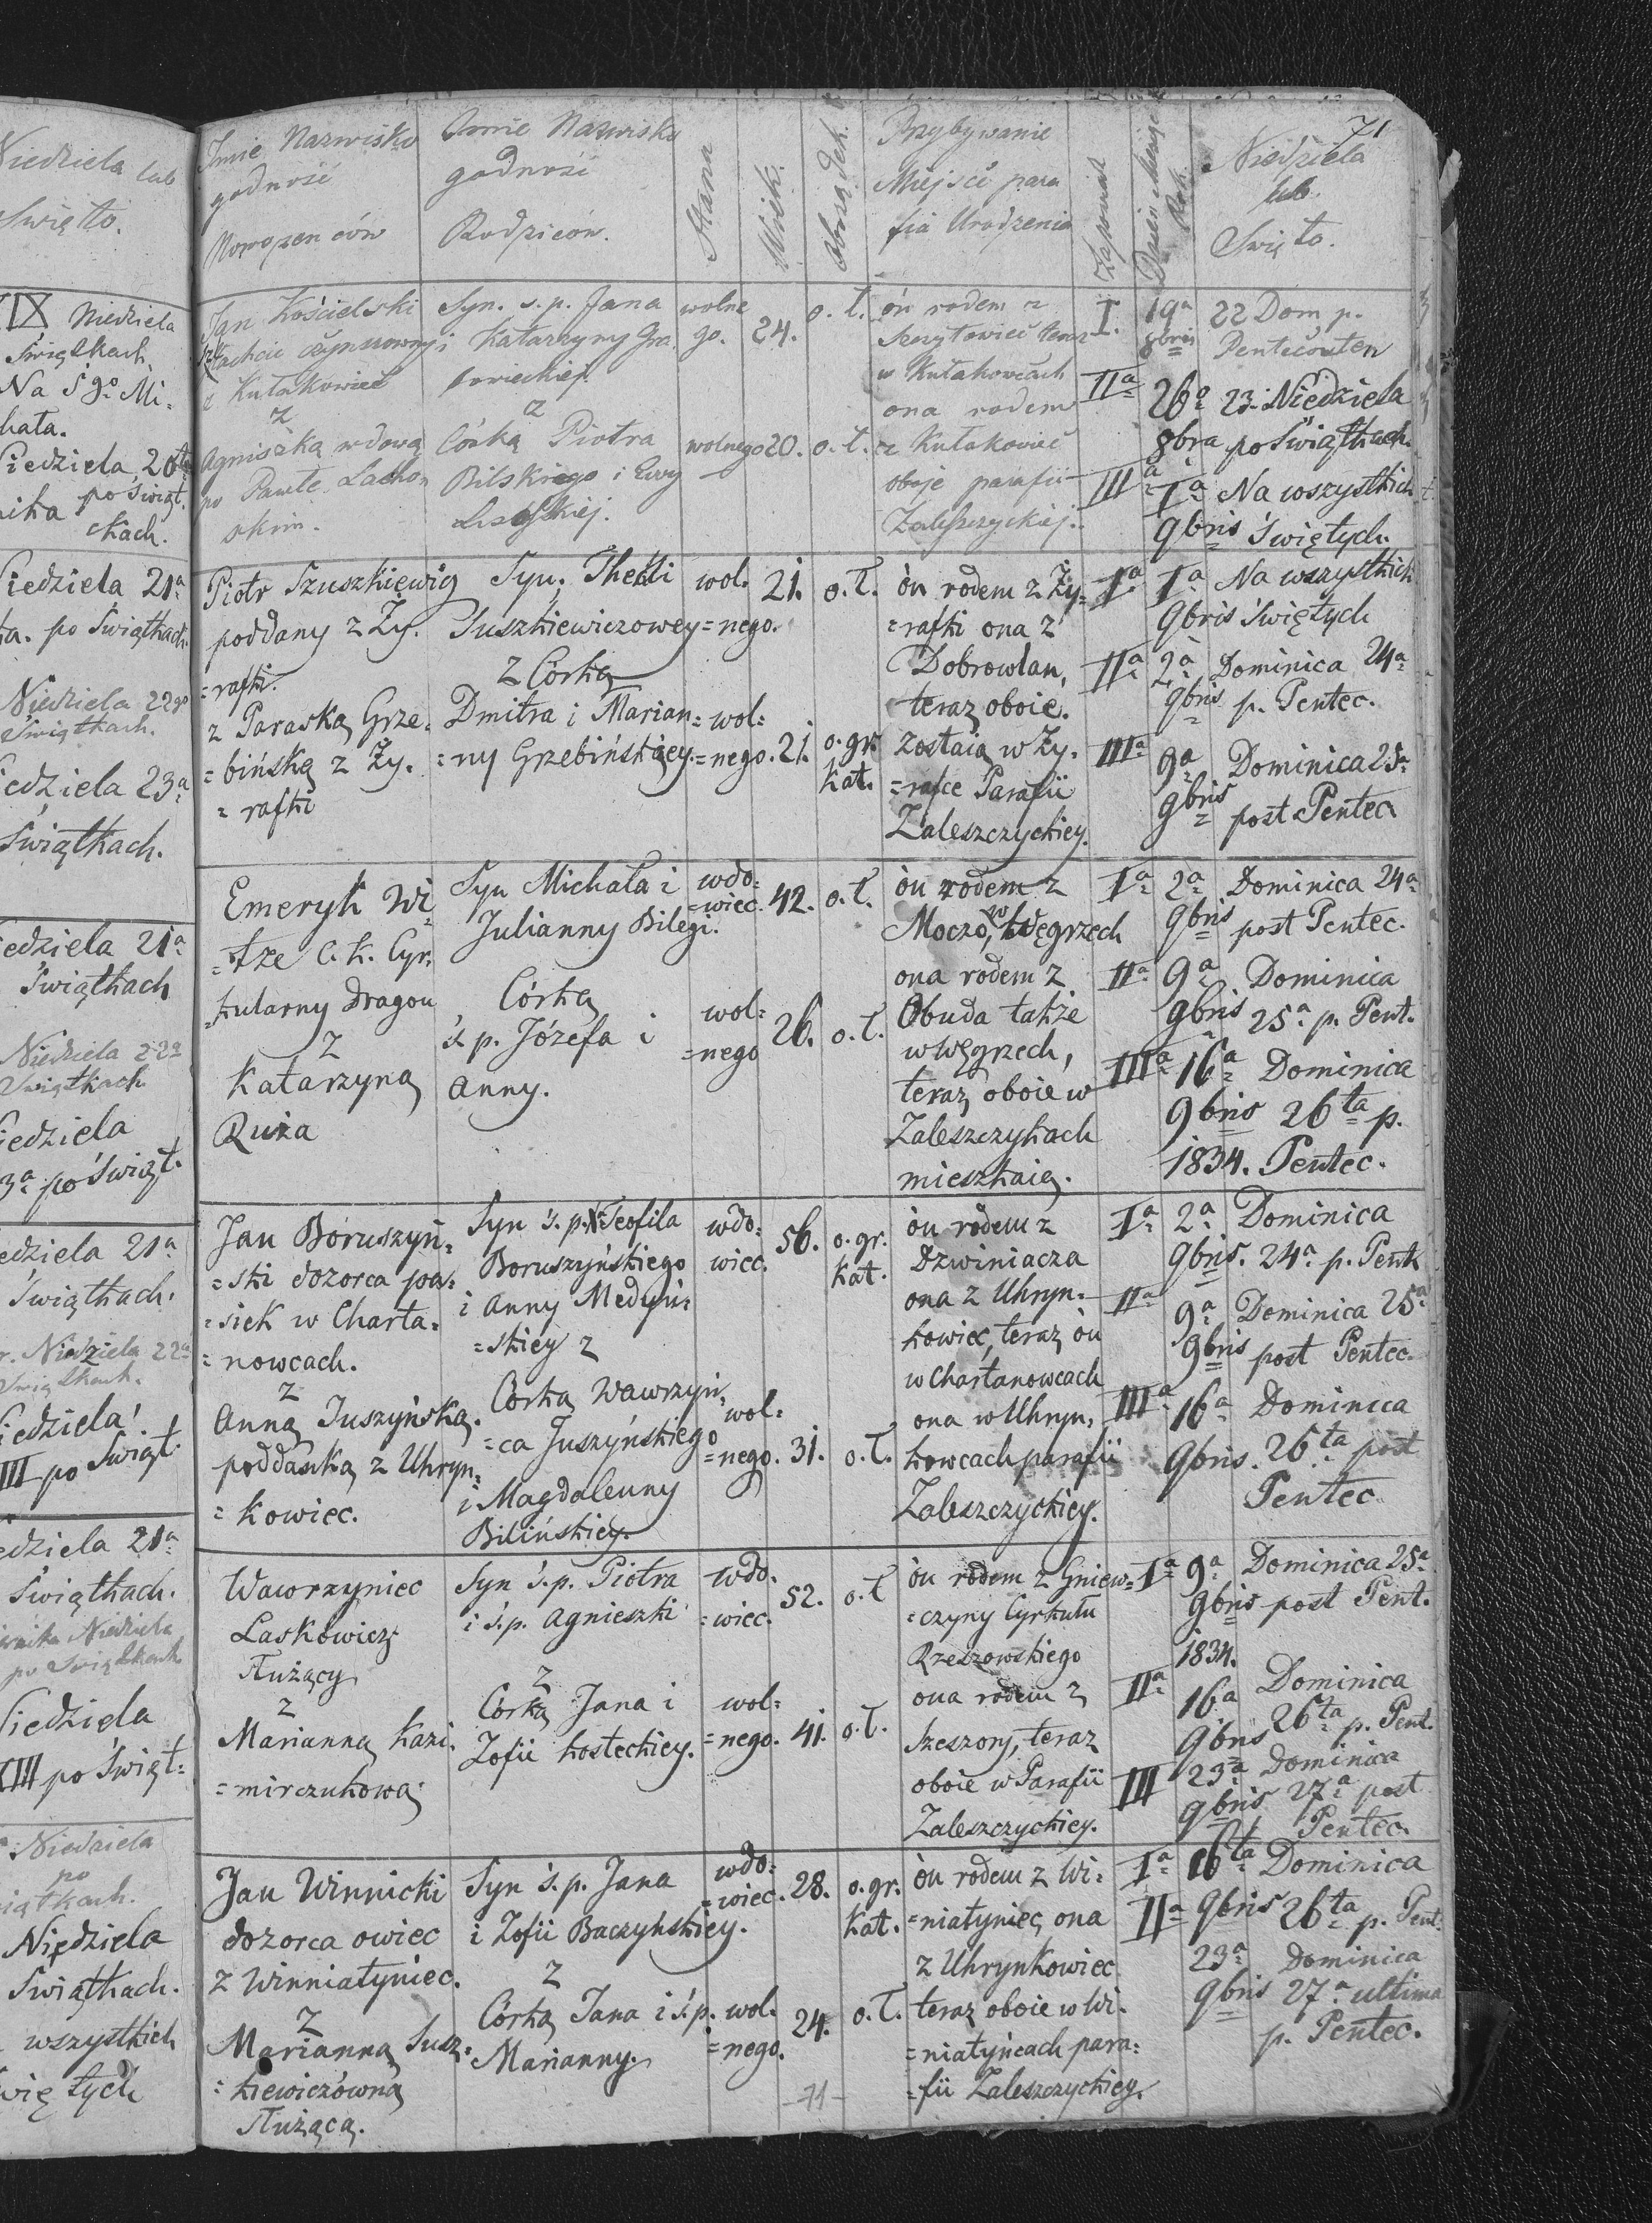 Niedziela lub
Święto.
XIX Niedziela
Świątkach
Na Sgo. Mi=
hała.
Niedziela 20ta
po Świąt.
kach.
Niedziela 21a
po Świątkach.
Niedziela 22ga
Świątkach.
Niedziela 23a
Świątkach.
Niedziela 21a
Świątkach
Niedziela 22a
Świątkach
Niedziela
3a po Świąt.
Niedziela 21a
Świątkach.
Niedziela 22a
Świątkach.
Niedziela
III po Świąt.
Niedziela 21a
Świątkach.
Niedziela
po Świątkach
Niedziela
XIII po Świąt=
Niedziela
po
Świątkach.
Niedziela
Świątkach.
wszystkich
Świętych
71
Imie Nazwisko
godność
Nowożeńców
Imie Nazwisko
godność
Rodziców.
Stanu
Wiek.
Obrządek.
Przybywanie
Miejsce para
fia Urodzenia
Zapowiedź
Dzień Miesiąc
Rok.
Niedziela
lub.
Święto.
Jan Kościelski
Szlachcic czynszowy
z Kułakowiec
z
Agniszką wdową
po Pawle Lachow
skim.
Syn. ś. p. Jana
i Katarzyny Gra.
bowieckiej.
z
Córką Piotra
Bilskiego i Ewy
wolne
go. 24. o. ł.
wolnego 20. o. ł.
ón rodem z
Szczytowiec teraz
w Kułakowcach
ona rodem
z Kułakowiec
oboje parafii
Zaleszczyckiej.
I. 19a 8bris 22 Dom p.
Pentecosten
IIa 26a 8bra 23. Niedziela
po Świątkach.
IIIa 1a 9bris Na wszystkich
Świętych.
Piotr Szuszkiewicz
poddany z Ży.
=rafki.
z Paraską Grze.
=bińską z Ży.
=rafki
Syn, Thekli
Juszkiewiczowey
z Córką
Dmitra i Marian=
=ny Grzebińskiey.
wol.
=nego. 21. o. ł.
wol=
=nego. 21. o. gr.
Kat.
ón rodem z Ży=
=rafki ona z
Dobrowlan,
teraz oboie.
zostaią w Ży.
=rafce Parafii
Zaleszczyckiey.
Ia 1a 9bris Na wszystkich
Świętych
IIa 2a 9bris Dominica 24a
p. Pentec.
IIIa 9a 9bris Dominica 25a
post Pentec.
Emeryk Wi=
=tze C. K. Cyr.
=kularny Dragon
z
Katarzyną
Ruża
Syn Michała i
Julianny Bilegi.
Córką
ś. p. Józefa i
Anny.
wdo=
=wiec. 42. o. ł.
wol=
=nego 26. o. ł.
ón rodem z
Moczo, w Węgrzech
ona rodem z
Obuda także
w Węgrzech,
teraz oboie w
Zaleszczykach
mieszkaią.
Ia 2a 9bris Dominica 24a
post Pentec.
IIa 9a 9bris Dominica
25a p. Pent.
IIIa 16a 9bris Dominica
26ta p.
1834. Pentec.
Jan Boruszyń=
=ski dozorca pa=
=siek w Charta=
=nowcach.
z
Anną Juszyńską.
poddanką z Uhryn=
=kowiec.
Syn ś. p. Teofila
Boruszyńskiego
i Anny Medyń=
=skiey z
Córką Wawrzyń=
=ca Juszyńskiego
i Magdalenny
Bilińskiey.
wdo=
wiec. 56. o. gr.
Kat.
wol=
=nego. 31. o. ł.
ón rodem z
Dzwiniacza
ona z Uhryn.
kowiec, teraz ón
w Chartanowcach
ona w Uhryn,
kowcach parafii
Zaleszczyckiey.
Ia 2a 9bris. Dominica
24a p. Pent
IIa 9a 9bris Dominica 25a
post Pentec.
IIIa 16a 9bris. Dominica
26ta post
Pentec.
Wawrzyniec
Laskowicz
służący
z
Marianną Kazi.
=mirczukową.
Syn ś. p. Piotra
i ś. p. Agnieszki
z
Córką Jana i
Zofii Kosteckiey.
wdo.
=wiec. 52. o. ł
wol=
=nego. 41. o. ł.
ón rodem z Gniew=
=czyny Cyrkułu
Rzeszowskiego
ona rodem z
Szeszory, teraz
oboie w Parafii
Zaleszczyckiey.
Ia 9a 9bris Dominica 25a
post Pent.
1834.
IIa 16a 9bris Dominica
26ta p. Pent.
III 23a 9bris Dominica
27a post
Pentec.
Jan Winnicki
dozorca owiec
z Winniatyniec.
z
Marianną Susz=
=kiewiczówną
służącą.
Syn ś. p. Jana
i Zofii Baczyńskiey.
z
Córką Jana i ś. p.
Marianny.
wdo=
=wiec. 28. o. gr.
Kat.
wol.
=nego. 24. o. ł.
ón rodem z Wi=
=niatyniec, ona
z Uhrynkowiec
teraz oboie w Wi.
=niatyńcach para=
=fii Zaleszczyckiey.
Ia 16ta 9bris Dominica
26ta p. Pent.
IIa 23a 9bris Dominica
27a ultima
p. Pentec.
-71-